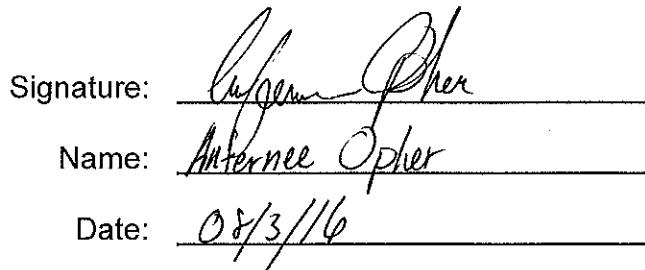 Signature: Anfernee Opher
Name: Anfernee Opher
Date: 08/3/16